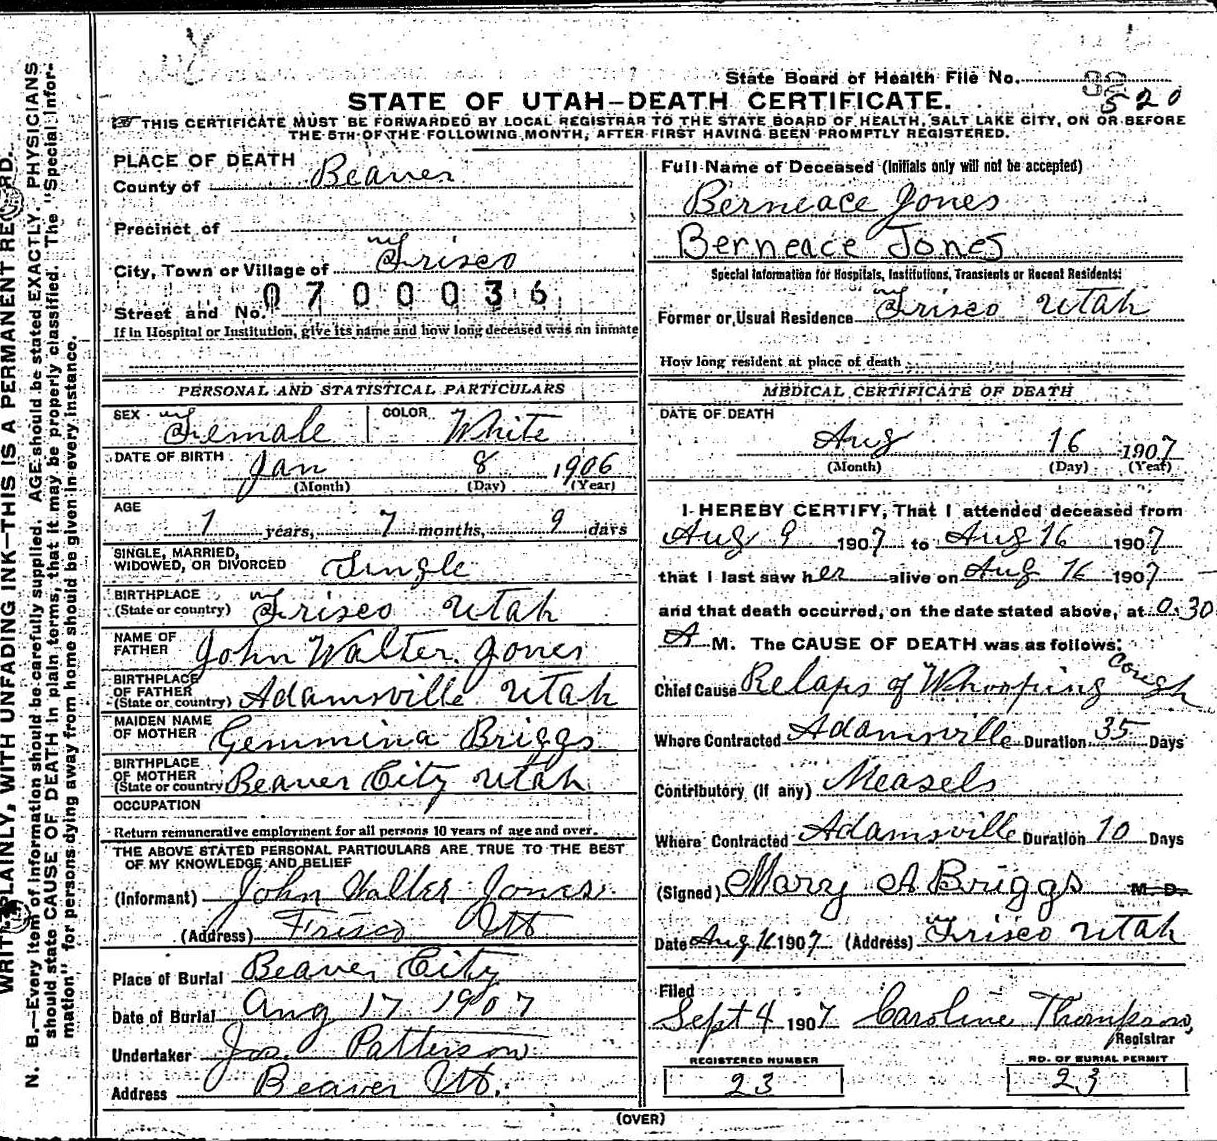 State Board of Health File No. 520
STATE OF UTAH—DEATH CERTIFICATE.
THIS CERTIFICATE MUST BE FORWARDED BY LOCAL REGISTRAR TO THE STATE BOARD OF HEALTH, SALT LAKE CITY, ON OR BEFORE
THE 5TH OF THE FOLLOWING MONTH, AFTER FIRST HAVING BEEN PROMPTLY REGISTERED.
PLACE OF DEATH
County of Beaver
Precinct of
City, Town or Village of Frisco
0700036
Street and No.
If in Hospital or Institution, give its name and how long deceased was an inmate
PERSONAL AND STATISTICAL PARTICULARS
SEX Female COLOR White
DATE OF BIRTH Jan 8 1906
(Month) (Day) (Year)
AGE
1 years, 7 months, 9 days
SINGLE, MARRIED,
WIDOWED, OR DIVORCED Single
BIRTHPLACE
(State or country) Frisco Utah
NAME OF
FATHER John Walter Jones
BIRTHPLACE
OF FATHER
(State or country) Adamsville Utah
MAIDEN NAME
OF MOTHER Gemmina Briggs
BIRTHPLACE
OF MOTHER
(State or country) Beaver City Utah
OCCUPATION
Return remunerative employment for all persons 10 years of age and over.
THE ABOVE STATED PERSONAL PARTICULARS ARE TRUE TO THE BEST
OF MY KNOWLEDGE AND BELIEF
(Informant) John Walter Jones
(Address) Frisco Ut
Place of Burial Beaver City
Date of Burial Aug 17 1907
Undertaker Jos. Patterson
Address Beaver Ut.
Full Name of Deceased (Initials only will not be accepted)
Berneace Jones
Berneace Jones
Special Information for Hospitals, Institutions, Transients or Recent Residents:
Former or Usual Residence Frisco Utah
How long resident at place of death
MEDICAL CERTIFICATE OF DEATH
DATE OF DEATH
Aug 16 1907
(Month) (Day) (Year)
I HEREBY CERTIFY, That I attended deceased from
Aug 9 1907 to Aug 16 1907
that I last saw her alive on Aug 16 1907
and that death occurred, on the date stated above, at 0:30
A M. The CAUSE OF DEATH was as follows:
Chief Cause Relaps of Whooping cough
Where Contracted Adamsville Duration 35 Days
Contributory (if any) Measels
Where Contracted Adamsville Duration 10 Days
(Signed) Mary A Briggs M. D.
Date Aug 16 1907 (Address) Frisco Utah
Filed
Sept 4 1907 Caroline Thompson,
Registrar
REGISTERED NUMBER
23
NO. OF BURIAL PERMIT
23
(OVER)
WRITE PLAINLY, WITH UNFADING INK—THIS IS A PERMANENT RECORD.
N. B.—Every item of information should be carefully supplied. AGE should be stated EXACTLY. PHYSICIANS
should state CAUSE OF DEATH in plain terms, that it may be properly classified. The "Special Infor-
mation" for persons dying away from home should be given in every instance.